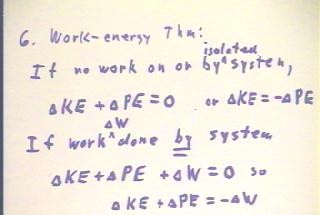 6. Work-energy Thm:
If no work on or by ^isolated system,
ΔKE + ΔPE = 0 or ΔKE = -ΔPE
If work ^ΔW done by system
ΔKE + ΔPE + ΔW = 0 so
ΔKE + ΔPE = -ΔW